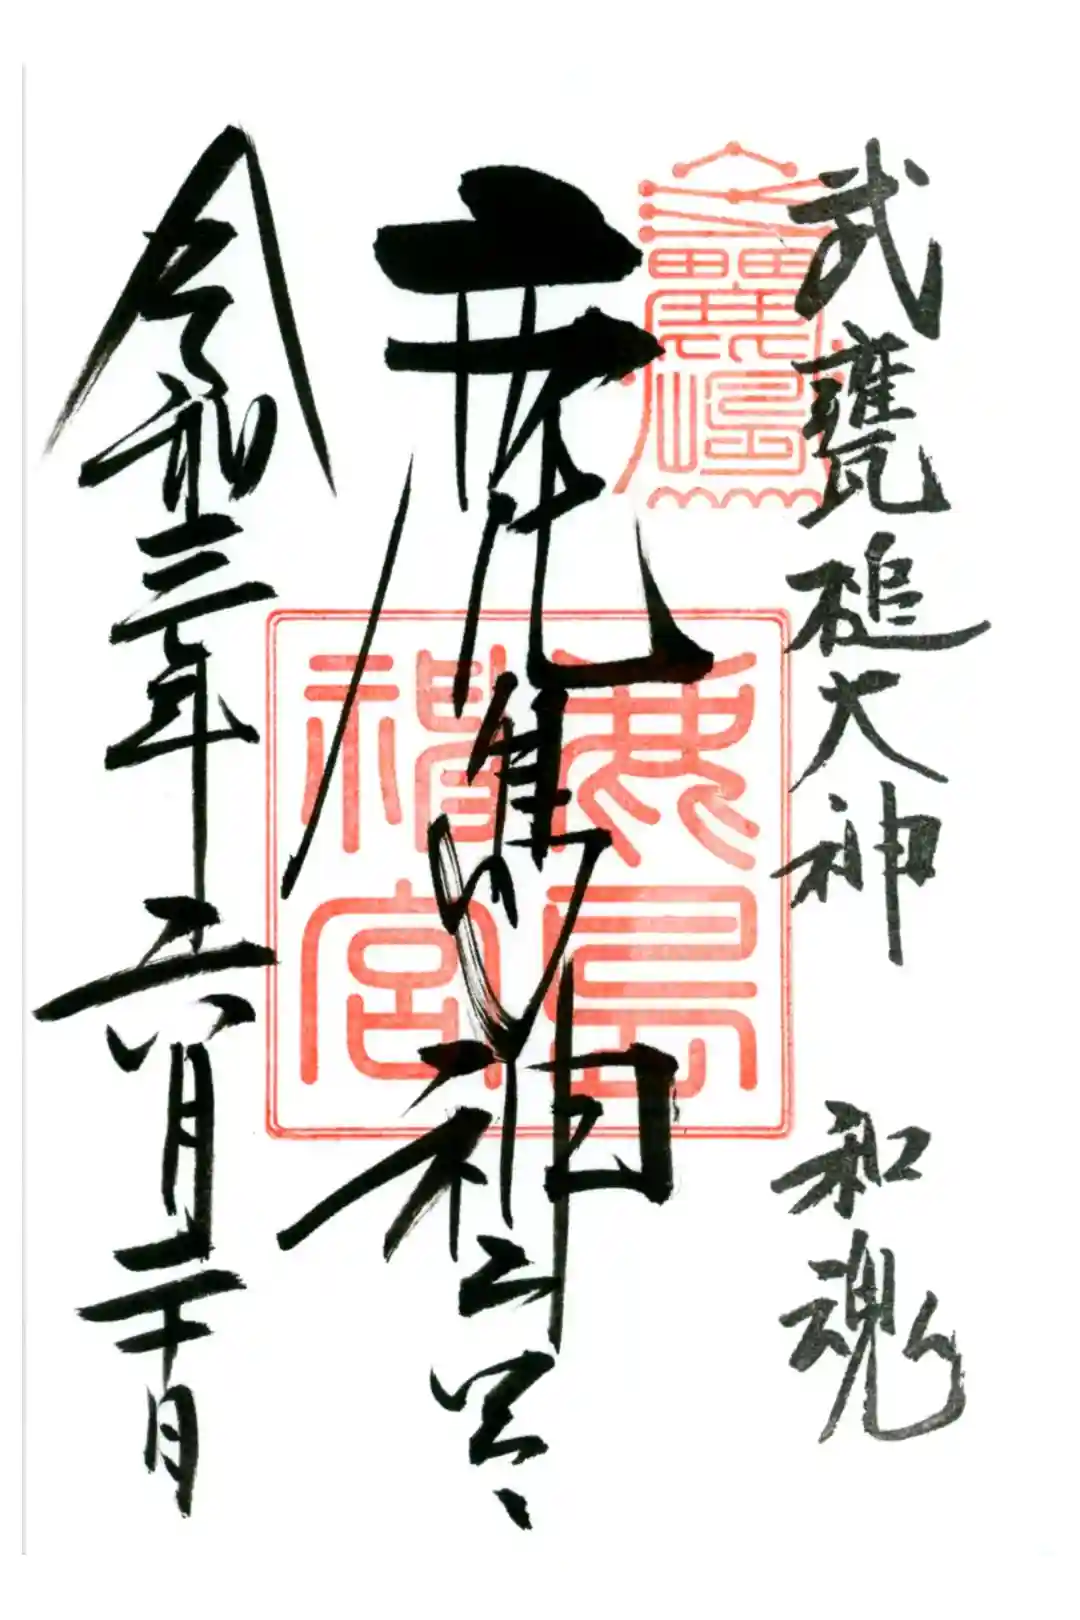 武甕槌大神 和魂
鹿島神宮
令和三年六月二十日
鹿島神宮